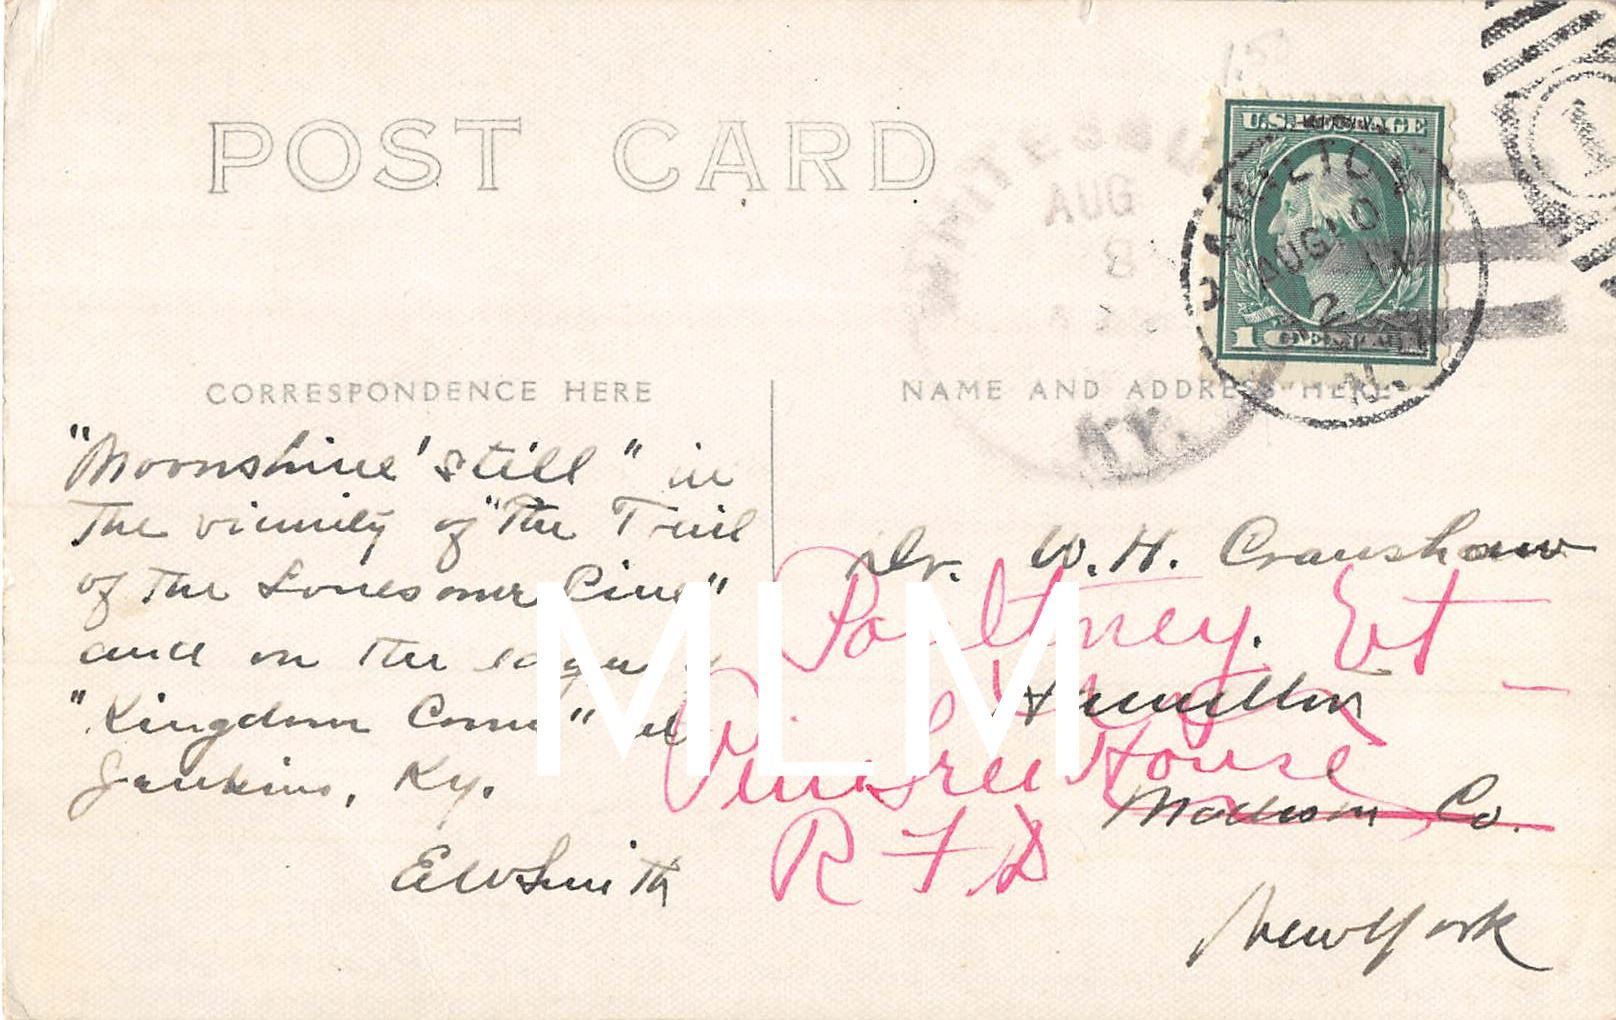 POST CARD
1.50
WHITESBU
AUG
8
KY.
HAMILTON
AUG 10
2
N.
1
U.S. POSTAGE
1 CENT
CORRESPONDENCE HERE
NAME AND ADDRESS HERE
"Moonshine' still" in
The vicinity of "The Trail
of The Lonesome Pine"
and on the edge of
"Kingdom Come" at
Jenkins, Ky.
EWSmith
Dr. W. H. Cranshaw
Hamilton
Madison Co.
New York
Poultney. Vt
Pine Tree House
R F D
MLM